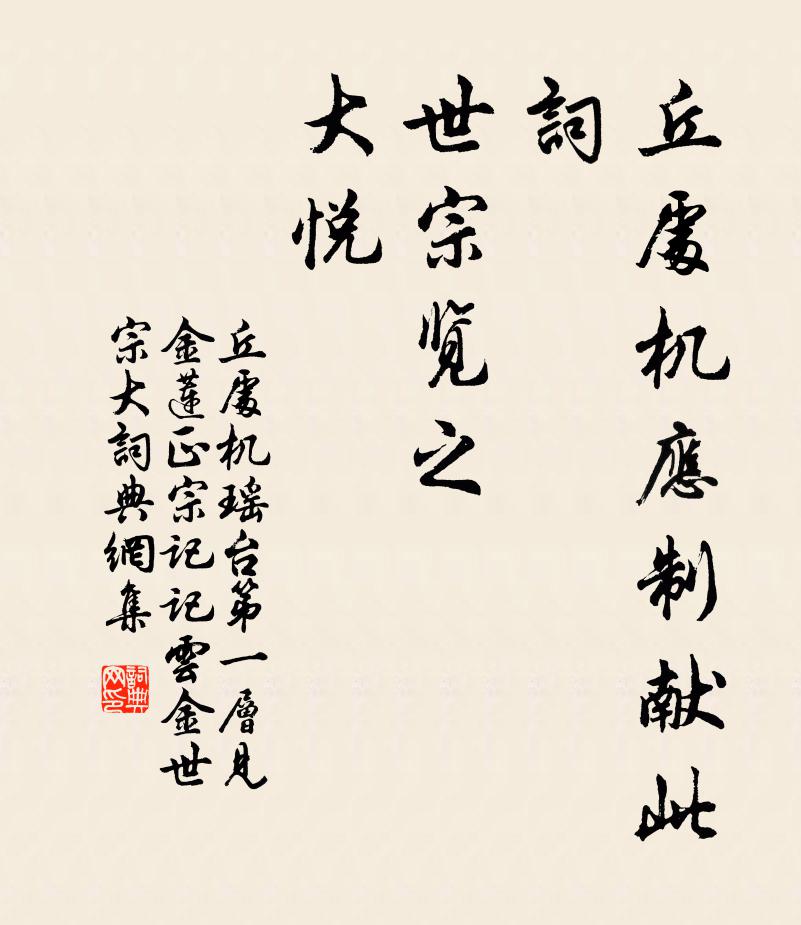 丘處机應制献此
詞
世宗览之
大悦
丘處机瑶台第一層見
金蓮正宗记记雲金世
宗大詞典網集
詞典
网印